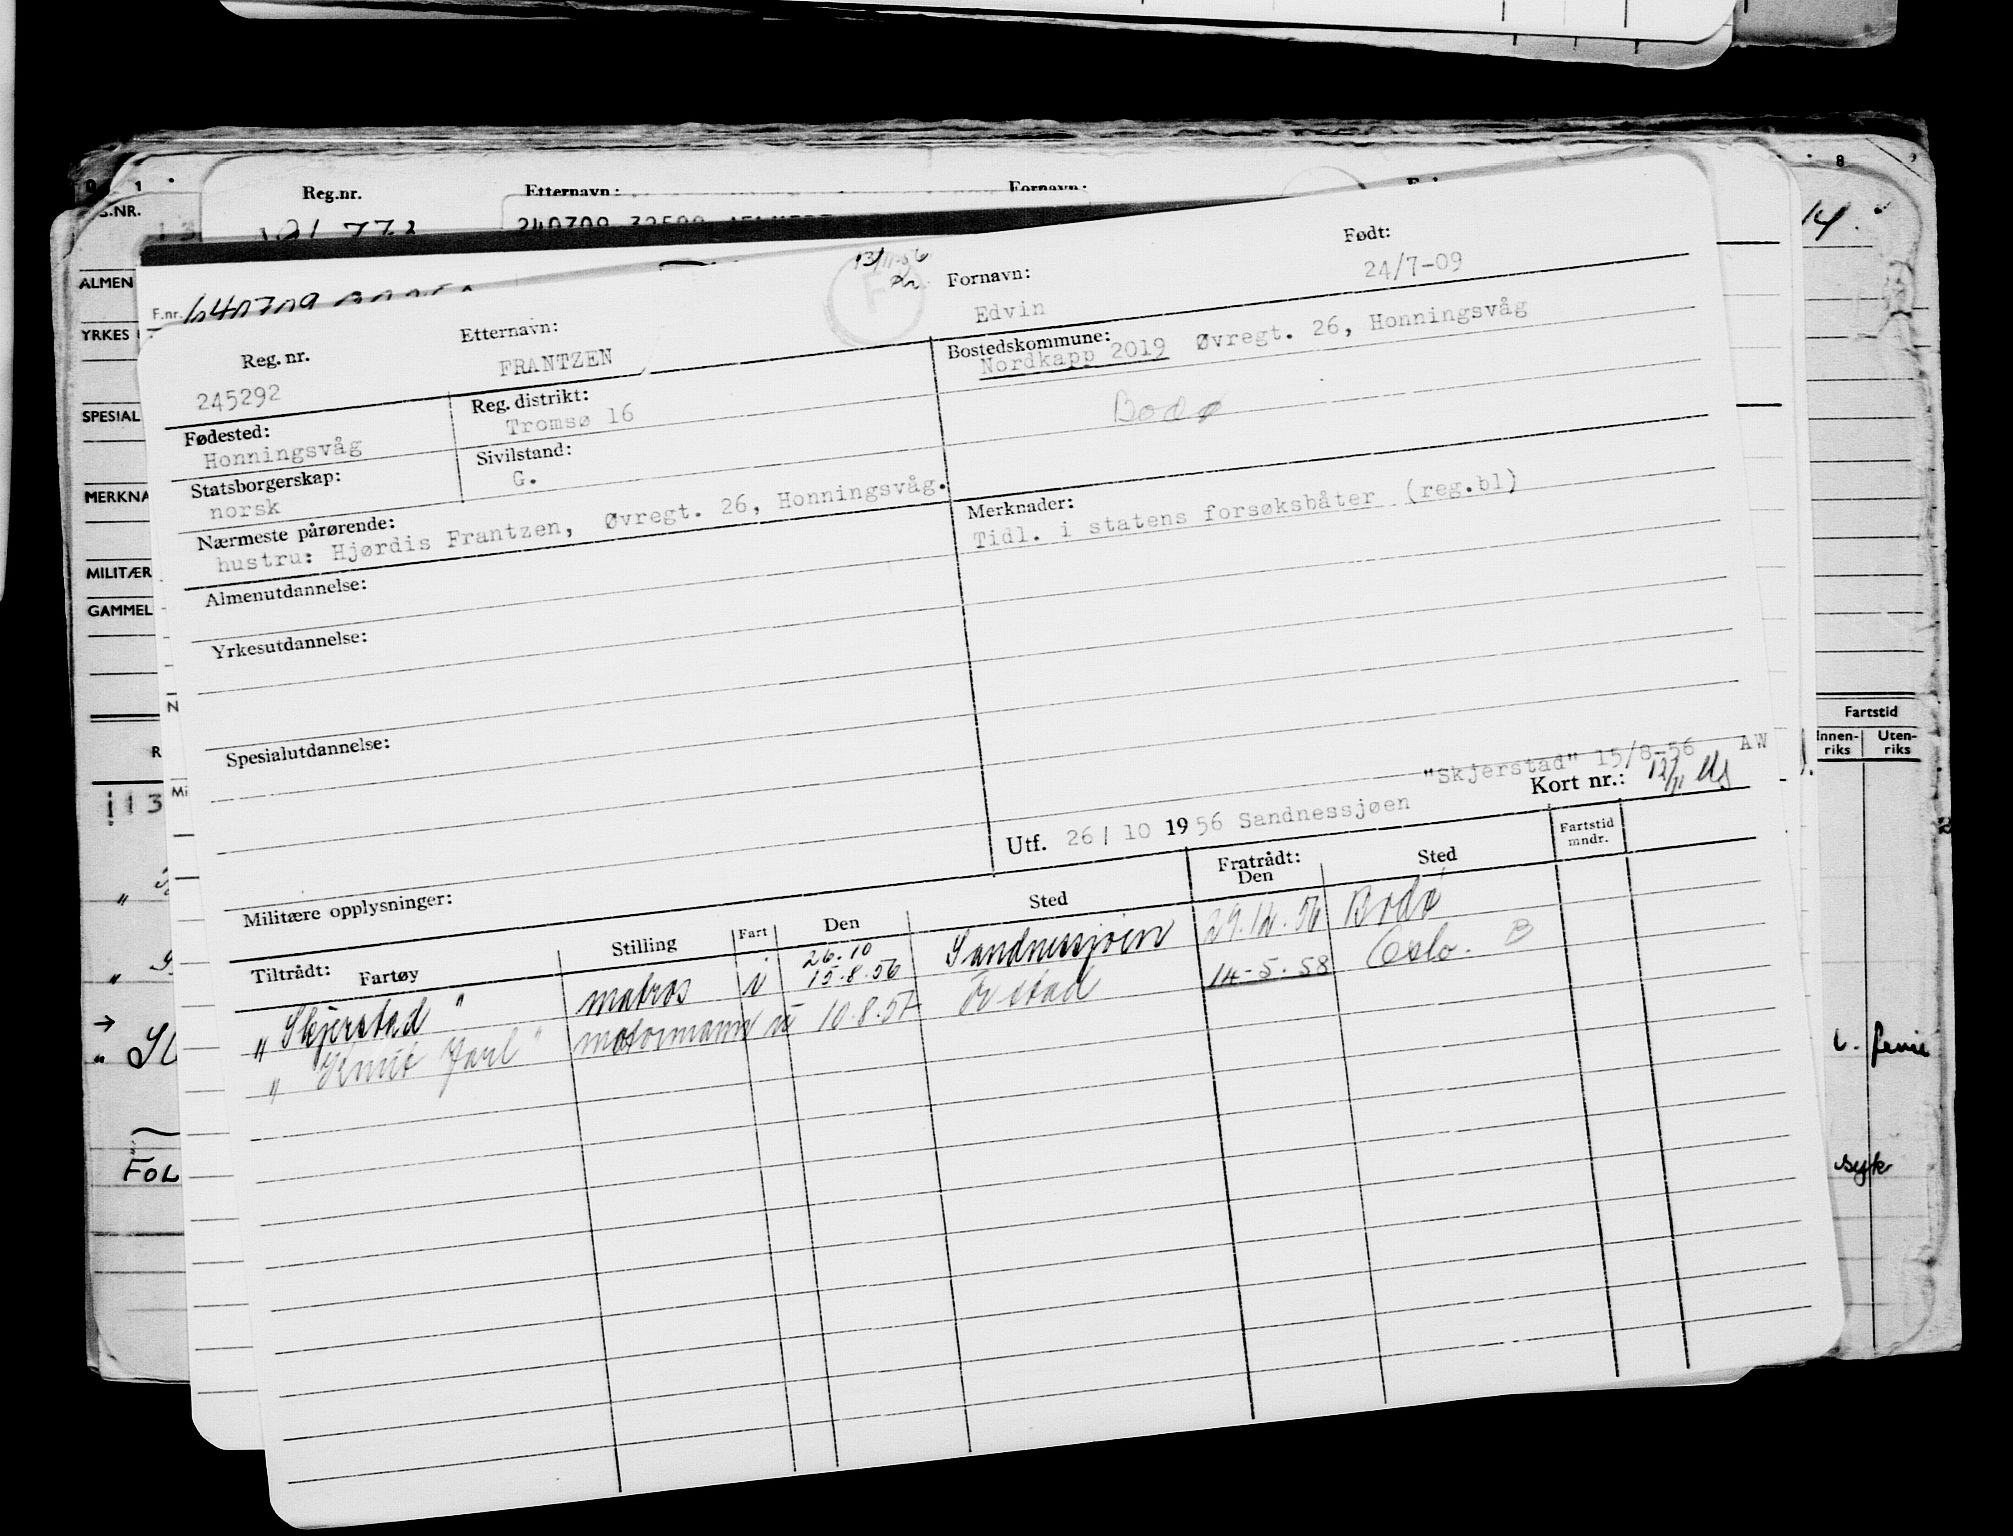 8
Reg.nr. Etternavn: Fornavn:
S.NR.
14.
ALMEN
YRKES
SPESIAL
MERKNA
MILITÆR
GAMMEL
Fartstid
Innen-riks Uten-riks
113
FOL
syk
F.nr.
13/11-56
F
Reg. nr. Etternavn: Fornavn: Født:
245292 FRANTZEN Edvin 24/7-09
Fødested: Reg. distrikt: Bostedskommune:
Honningsvåg Tromsø 16 Nordkapp 2019 Øvregt. 26, Honningsvåg
Bodø
Statsborgerskap: Sivilstand:
norsk G.
Nærmeste pårørende: Merknader:
hustru: Hjørdis Frantzen, Øvregt. 26, Honningsvåg. Tidl. i statens forsøksbåter (reg.bl)
Almenutdannelse:
Yrkesutdannelse:
Spesialutdannelse:
"Skjerstad" 15/8-56 AW
Kort nr.: 12/11
Utf. 26/10 1956 Sandnessjøen
Militære opplysninger:
Tiltrådt: Fartøy Stilling Fart Den Sted Fratrådt: Den Sted Fartstid mndr.
26.10
"Skjerstad" matros i 15.8.56 Sandnessjøen 29.12.56 Bodø
"Knut Jarl" motormann u 10.8.57 14-5.58 Oslo. B